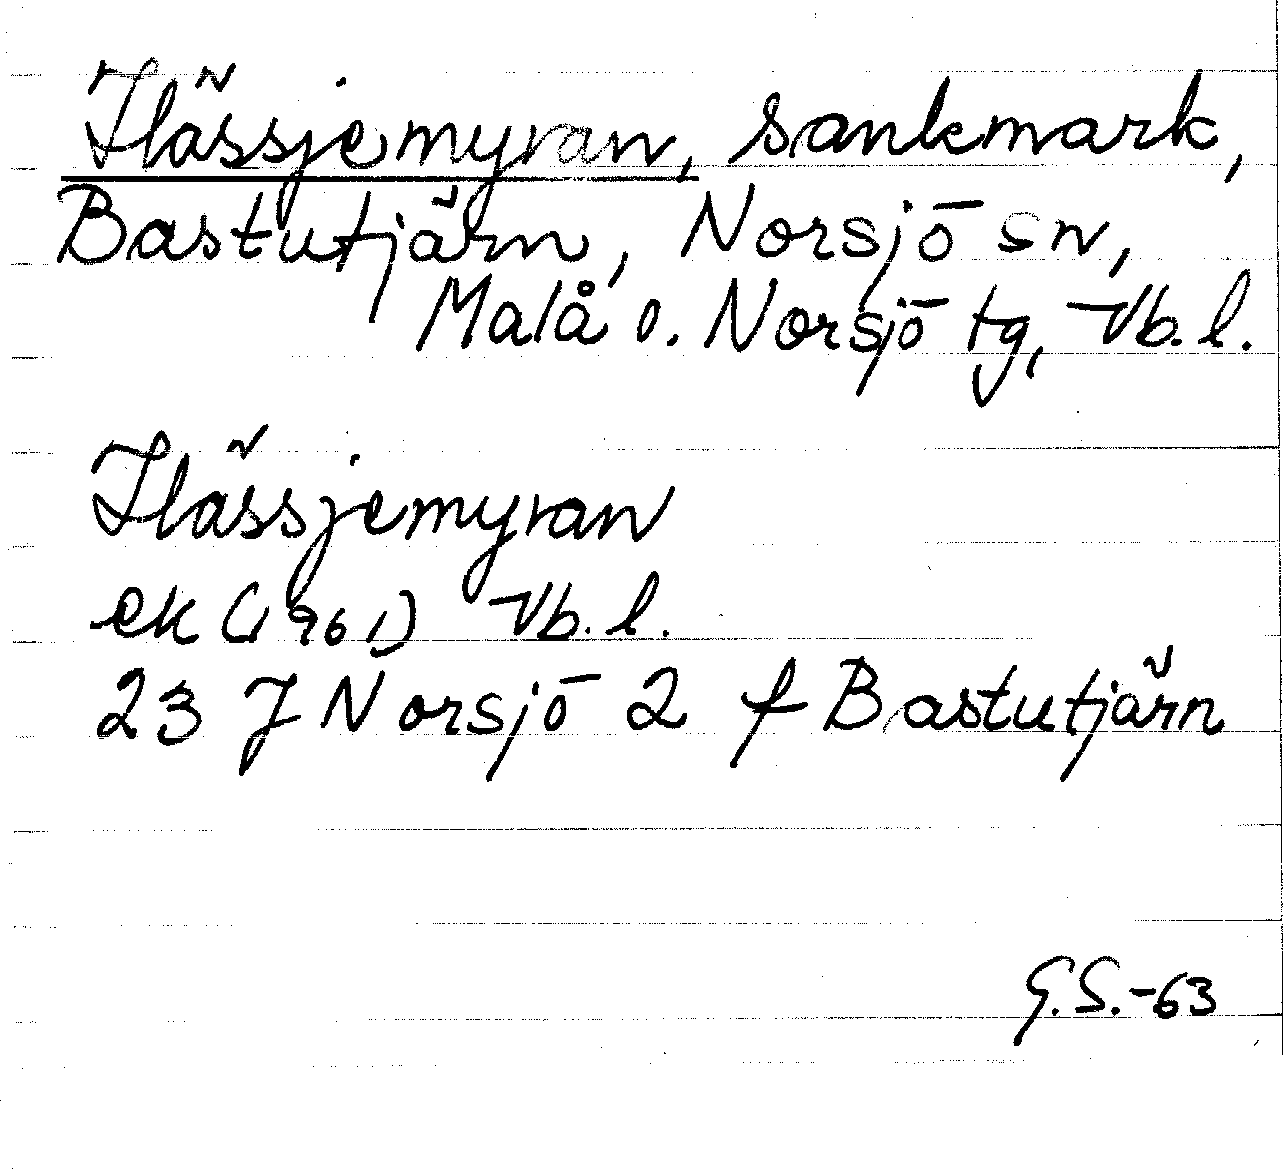 Hässjemyran, sankmark,
Bastutjärn, Norsjö sn,
Malå o. Norsjö tg, Vb. l.
Hässjemyran
ek (1961) Vb. l.
23 J Norsjö 2 f Bastutjärn
G.S.-63